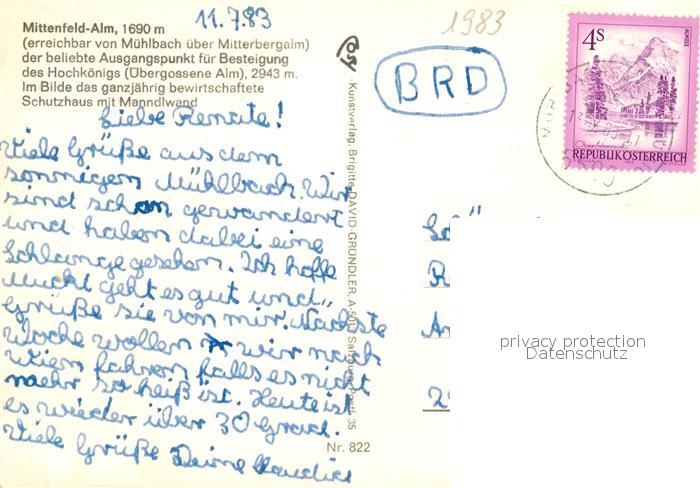 11.7.83
1983
Mittenfeld-Alm, 1690 m
(erreichbar von Mühlbach über Mitterbergalm)
der beliebte Ausgangspunkt für Besteigung
des Hochkönigs (Übergossene Alm), 2943 m.
Im Bilde das ganzjährig bewirtschaftete
Schutzhaus mit Manndlwand
BRD
4S
ALMSEE
REPUBLIK ÖSTERREICH
Liebe Renate!
Viele Grüße aus dem
sonnigen Mühlbach. Wir
sind schon gewandert
und haben dabei eine
Schlange gesehen. Ich hoffe
Mucki geht es gut und
Grüße sie von mir. Nächste
Woche wollen wir nach
Wien fahren falls es nicht
mehr so heiß ist. Heute ist
es wieder über 30 Grad.
Viele Grüße Deine Claudia
Kunstverlag, Brigitte DAVID-GRÜNDLER, A-5013 Salzburg, Postf. 35
Nr. 822
privacy protection
Datenschutz